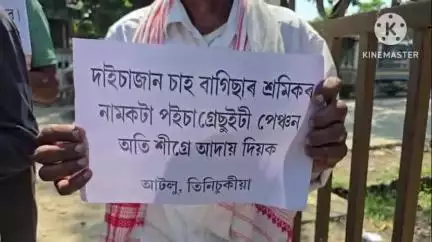 দাইচাজান চাহ বাগিছাৰ শ্ৰমিকৰ
নামকটা পইচা গ্ৰেছুইটী পেঞ্চন
অতি শীঘ্ৰে আদায় দিয়ক
আটলু, তিনিচুকীয়া
KINEMASTER